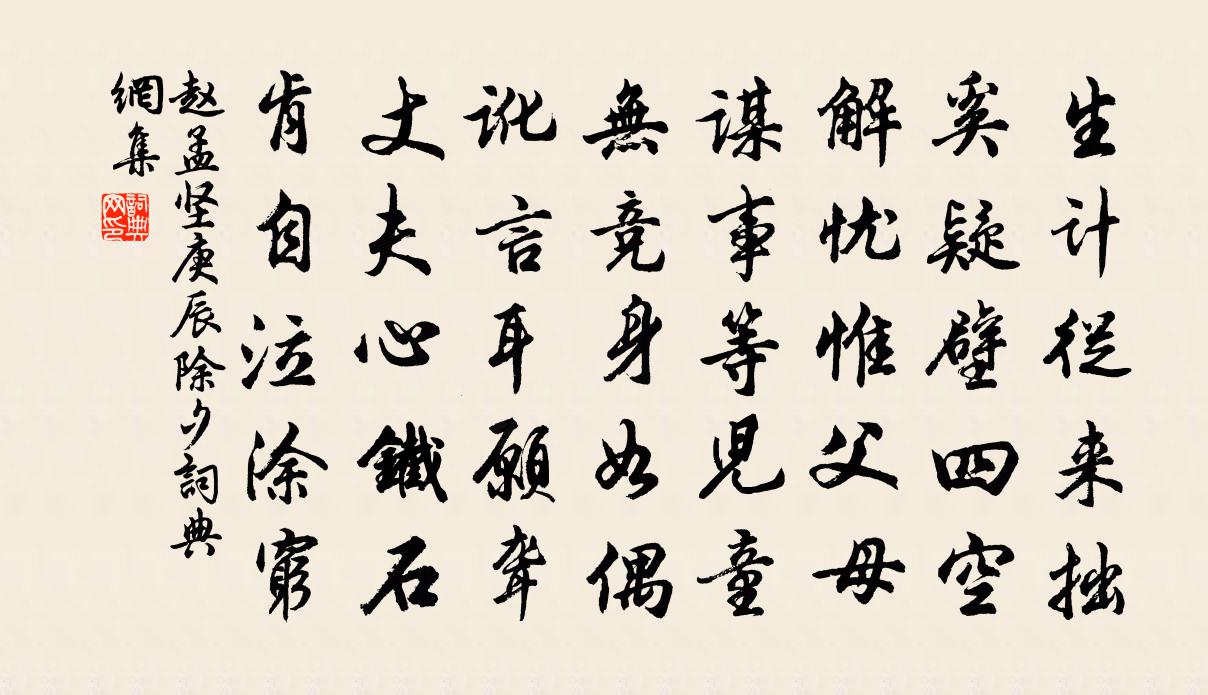 生计従来拙
奚疑壁四空
解忧惟父母
谋事等児童
無竞身如偶
讹言耳願聋
丈夫心鐵石
肯自泣涂窮
赵孟坚庚辰除夕詞典
網集
詞典
网印